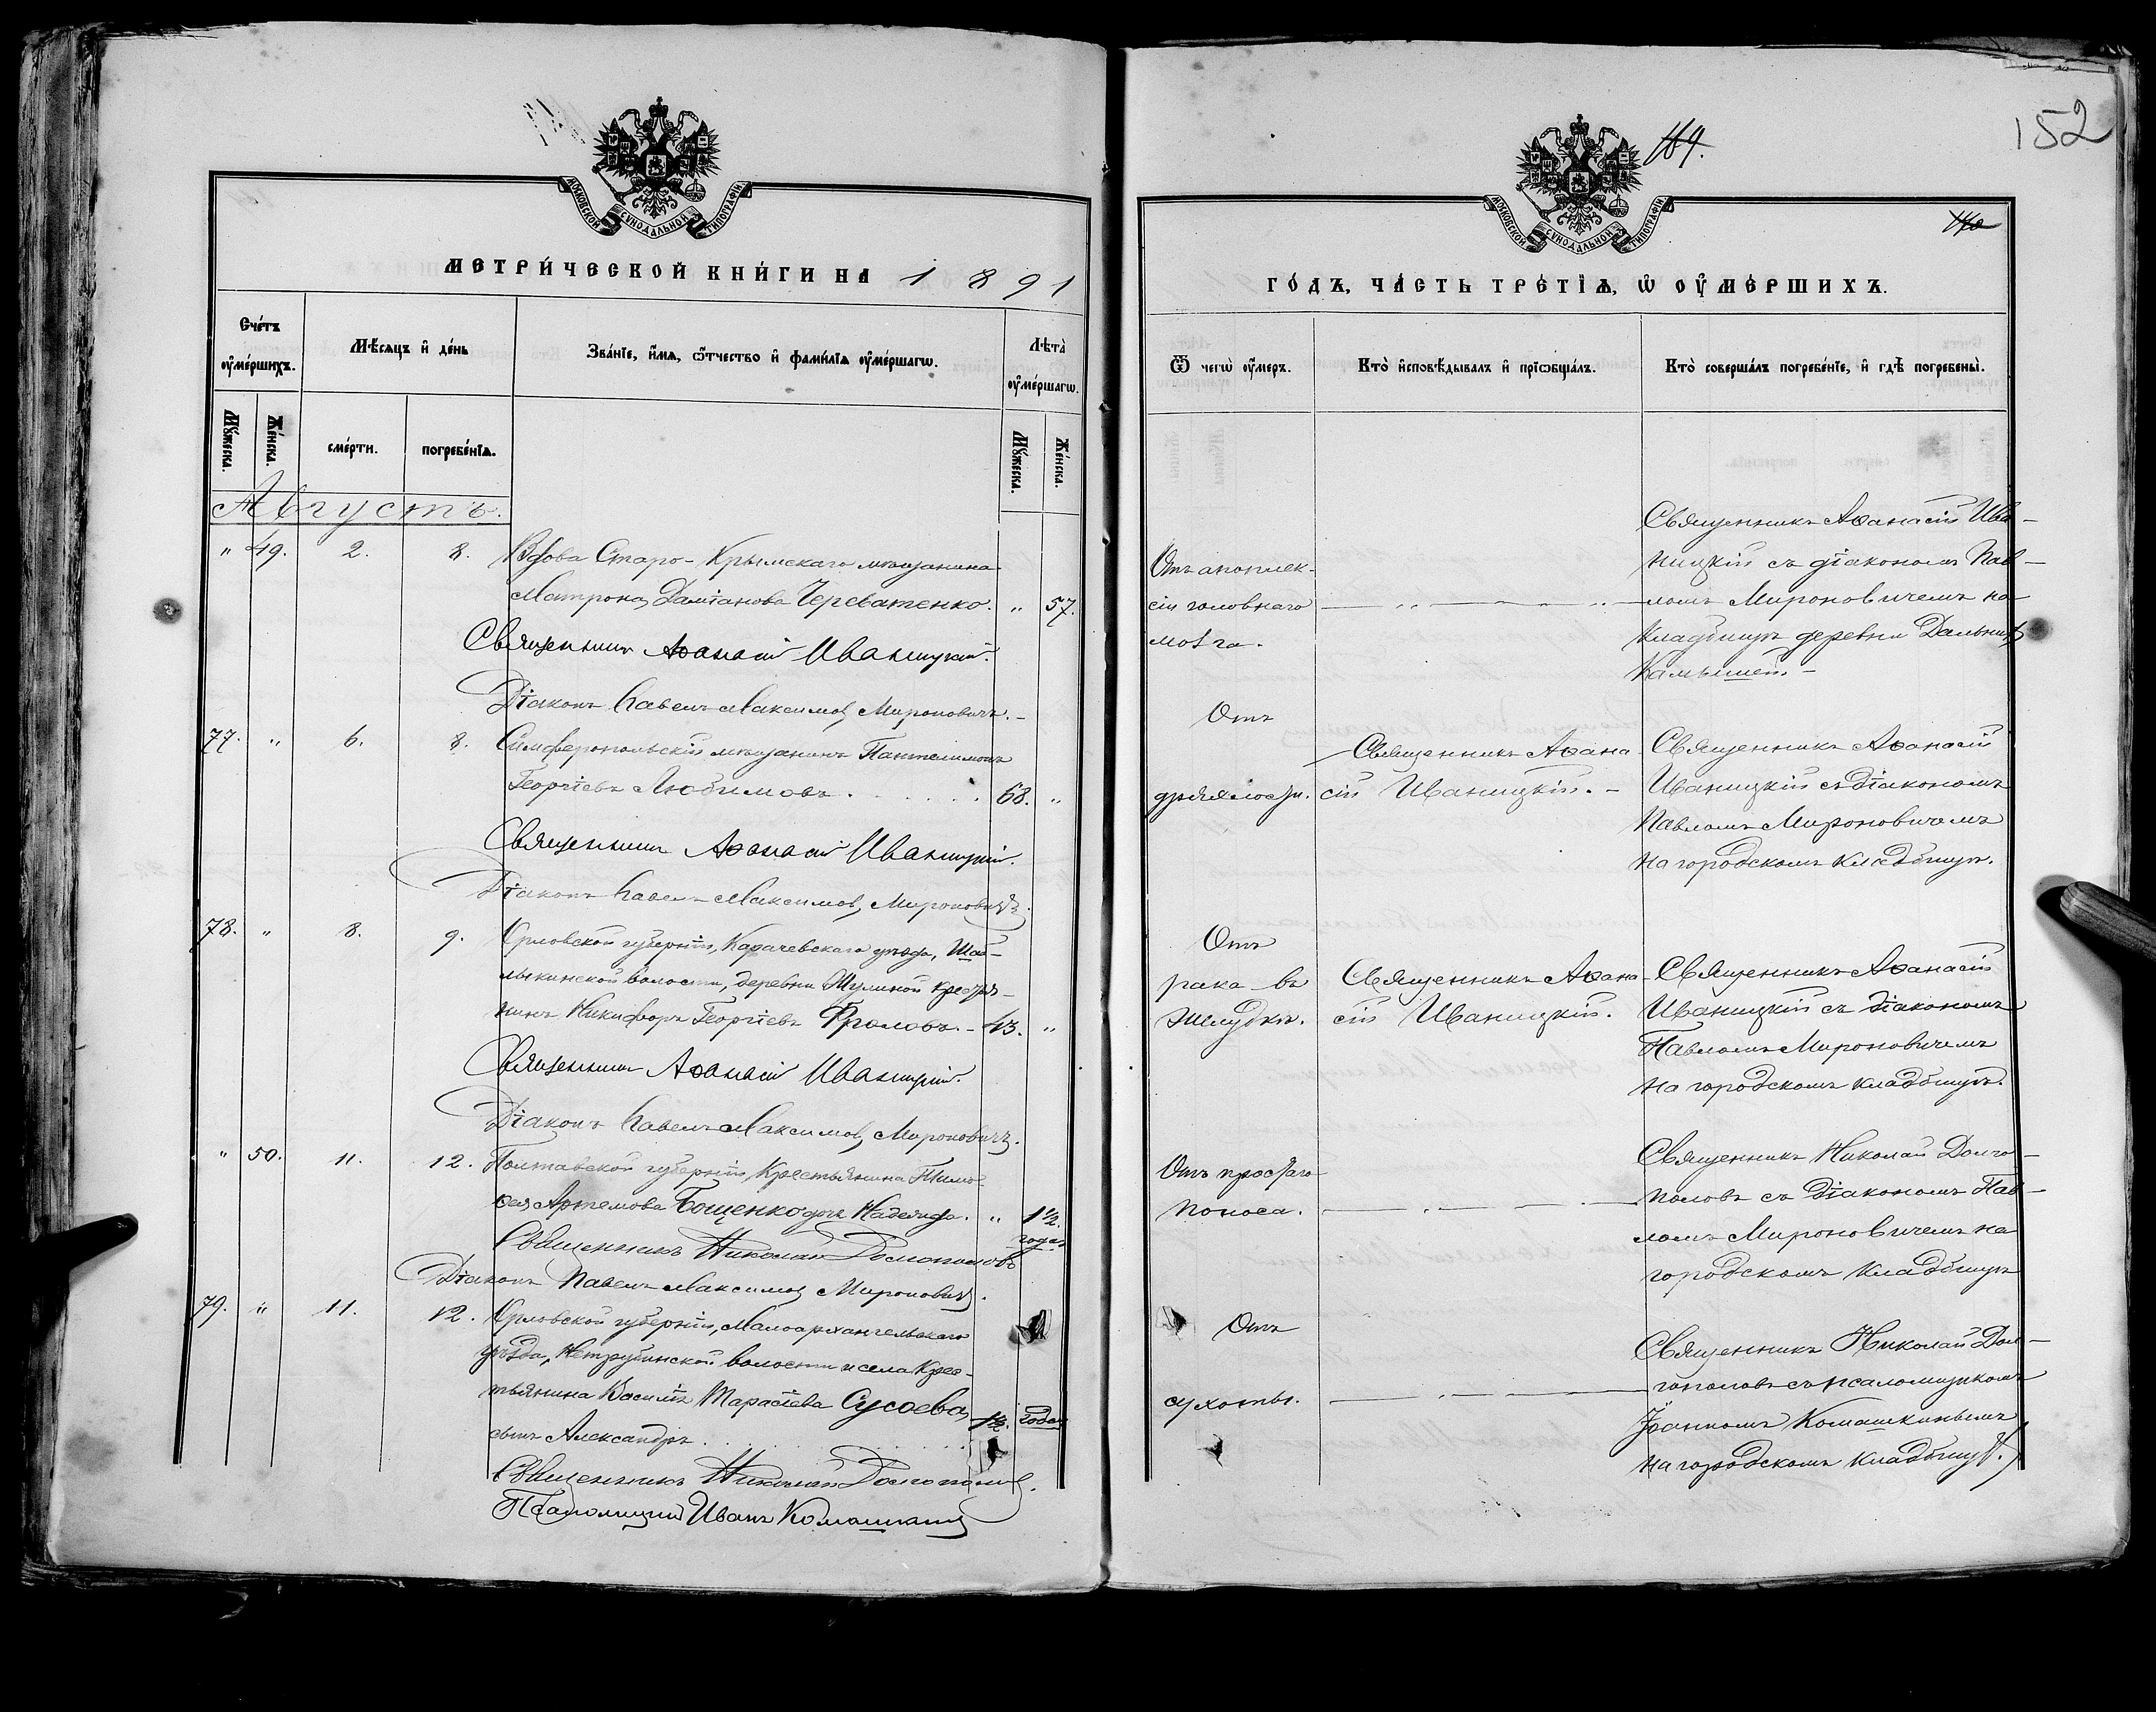 МОСКОВСКОЙ СѴНОДАЛЬНОЙ ТИПОГРАФІИ
МЕТРИ́ЧЕСКОЙ КНИ́ГИ НА 1891
Счетъ ᲂу҆ме́ршихъ.
Мѣ́сяцъ и҆ де́нь
Зва́нїе, и҆́мѧ, ѻ҆́тчество и҆ фами́лїѧ ᲂу҆ме́ршагѡ.
Лѣ̑та ᲂу҆ме́ршагѡ.
Мꙋ́жеска. Же́нска.
сме́рти. погребе́нїѧ.
Мꙋ́жеска. Же́нска.
Августъ.
" 49. 2. 8. Вдова Старо-Крымскаго мѣщанина
Матрона Даміанова Череватенко. " 57.
Священникъ Аѳанасій Иваницкій.
Діаконъ Павелъ Максимов Мироновичъ.
77. " 6. 8. Симферопольскій мѣщанинъ Пантелимонъ
Георгіевъ Любимовъ . . . . . . 68. "
Священникъ Аѳанасій Иваницкій.
Діаконъ Павелъ Максимов Мироновичъ.
78. " 8. 9. Орловской губерніи, Карачевскаго уѣзда, Шаб-
лыкинской волости, деревни крестья-
нинъ Никифоръ Георгіевъ Фроловъ. - 43. "
Священникъ Аѳанасій Иваницкій.
Діаконъ Павелъ Максимов Мироновичъ.
" 50. 11. 12. Полтавской губерніи, Крестьянина Тимо-
ѳея Артемова Бощенко дочь Надежда. " 1½.
года
Священникъ Николай Долгополовъ
Діаконъ Павелъ Максимов Мироновичъ.
79. " 11. 12. Орловской губерніи, Малоархангельскаго
уѣзда, волости и села Крес-
тьянина Василія Тарасіева Сусоева
сынъ Александръ . . . 1½. года
Священникъ Николай Долгополовъ.
Псаломщикъ Иванъ Комашкинъ
152
169.
МОСКОВСКОЙ СѴНОДАЛЬНОЙ ТИПОГРАФІИ
ГО́ДЪ, ЧА́СТЬ ТРЕ́ТЇѦ, Ѡ҆ ᲂУ҆МЕ́РШИХЪ.
Ѿ чегѡ̀ ᲂу҆́меръ.
Кто̀ и҆сповѣ́дывалъ и҆ прїѡбща́лъ.
Кто̀ соверша́лъ погребе́нїе, и҆ гдѣ̀ погребены̀.
Отъ апоплек-
сіи головнаго
мозга.
Священникъ Аѳанасій Ива-
ницкій съ діакономъ Пав-
ломъ Мироновичемъ на
кладбищѣ деревни Дальнихъ
Камышей.
Отъ
дряхлости.
Священникъ Аѳана-
сій Иваницкій.
Священникъ Аѳанасій
Иваницкій съ Діакономъ
Павломъ Мироновичемъ
на городскомъ кладбищѣ.
Отъ
рака въ
желудкѣ.
Священникъ Аѳана-
сій Иваницкій.
Священникъ Аѳанасій
Иваницкій съ Діакономъ
Павломъ Мироновичемъ
на городскомъ кладбищѣ.
Отъ простаго
поноса.
Священникъ Николай Долго-
половъ съ Діакономъ Пав-
ломъ Мироновичемъ на
городскомъ кладбищѣ
Отъ
сухотки.
Священникъ Николай Дол-
гополовъ съ псаломщикомъ
Іоанномъ Комашкинымъ
на городскомъ кладбищѣ.